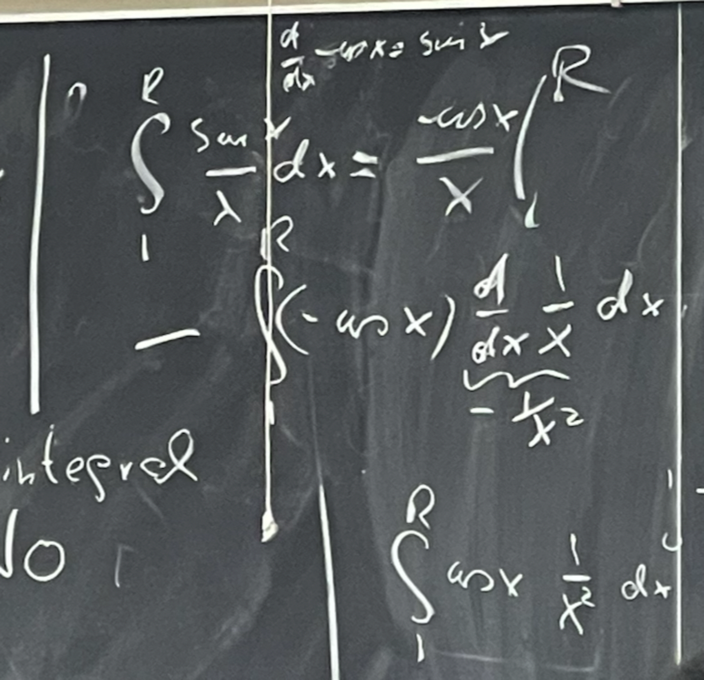 d/dx -cos x = sin x
∫_1^R sin x/x dx = -cos x/x |_1^R
- ∫_1^R (-cos x) d/dx 1/x dx
-1/x²
integral
No
∫_1^R cos x 1/x² dx